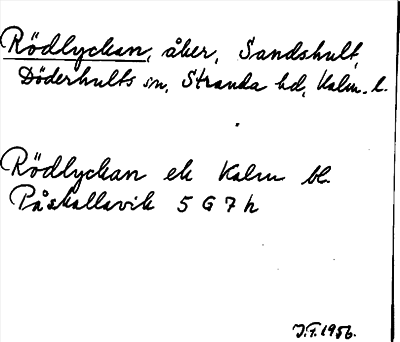 Rödlyckan, åker, Sandshult,
Döderhults sn, Stranda hd, Kalm. l.
Rödlyckan ek Kalm bl.
Påskallavik 5 G 7 h
J.F. 1956.